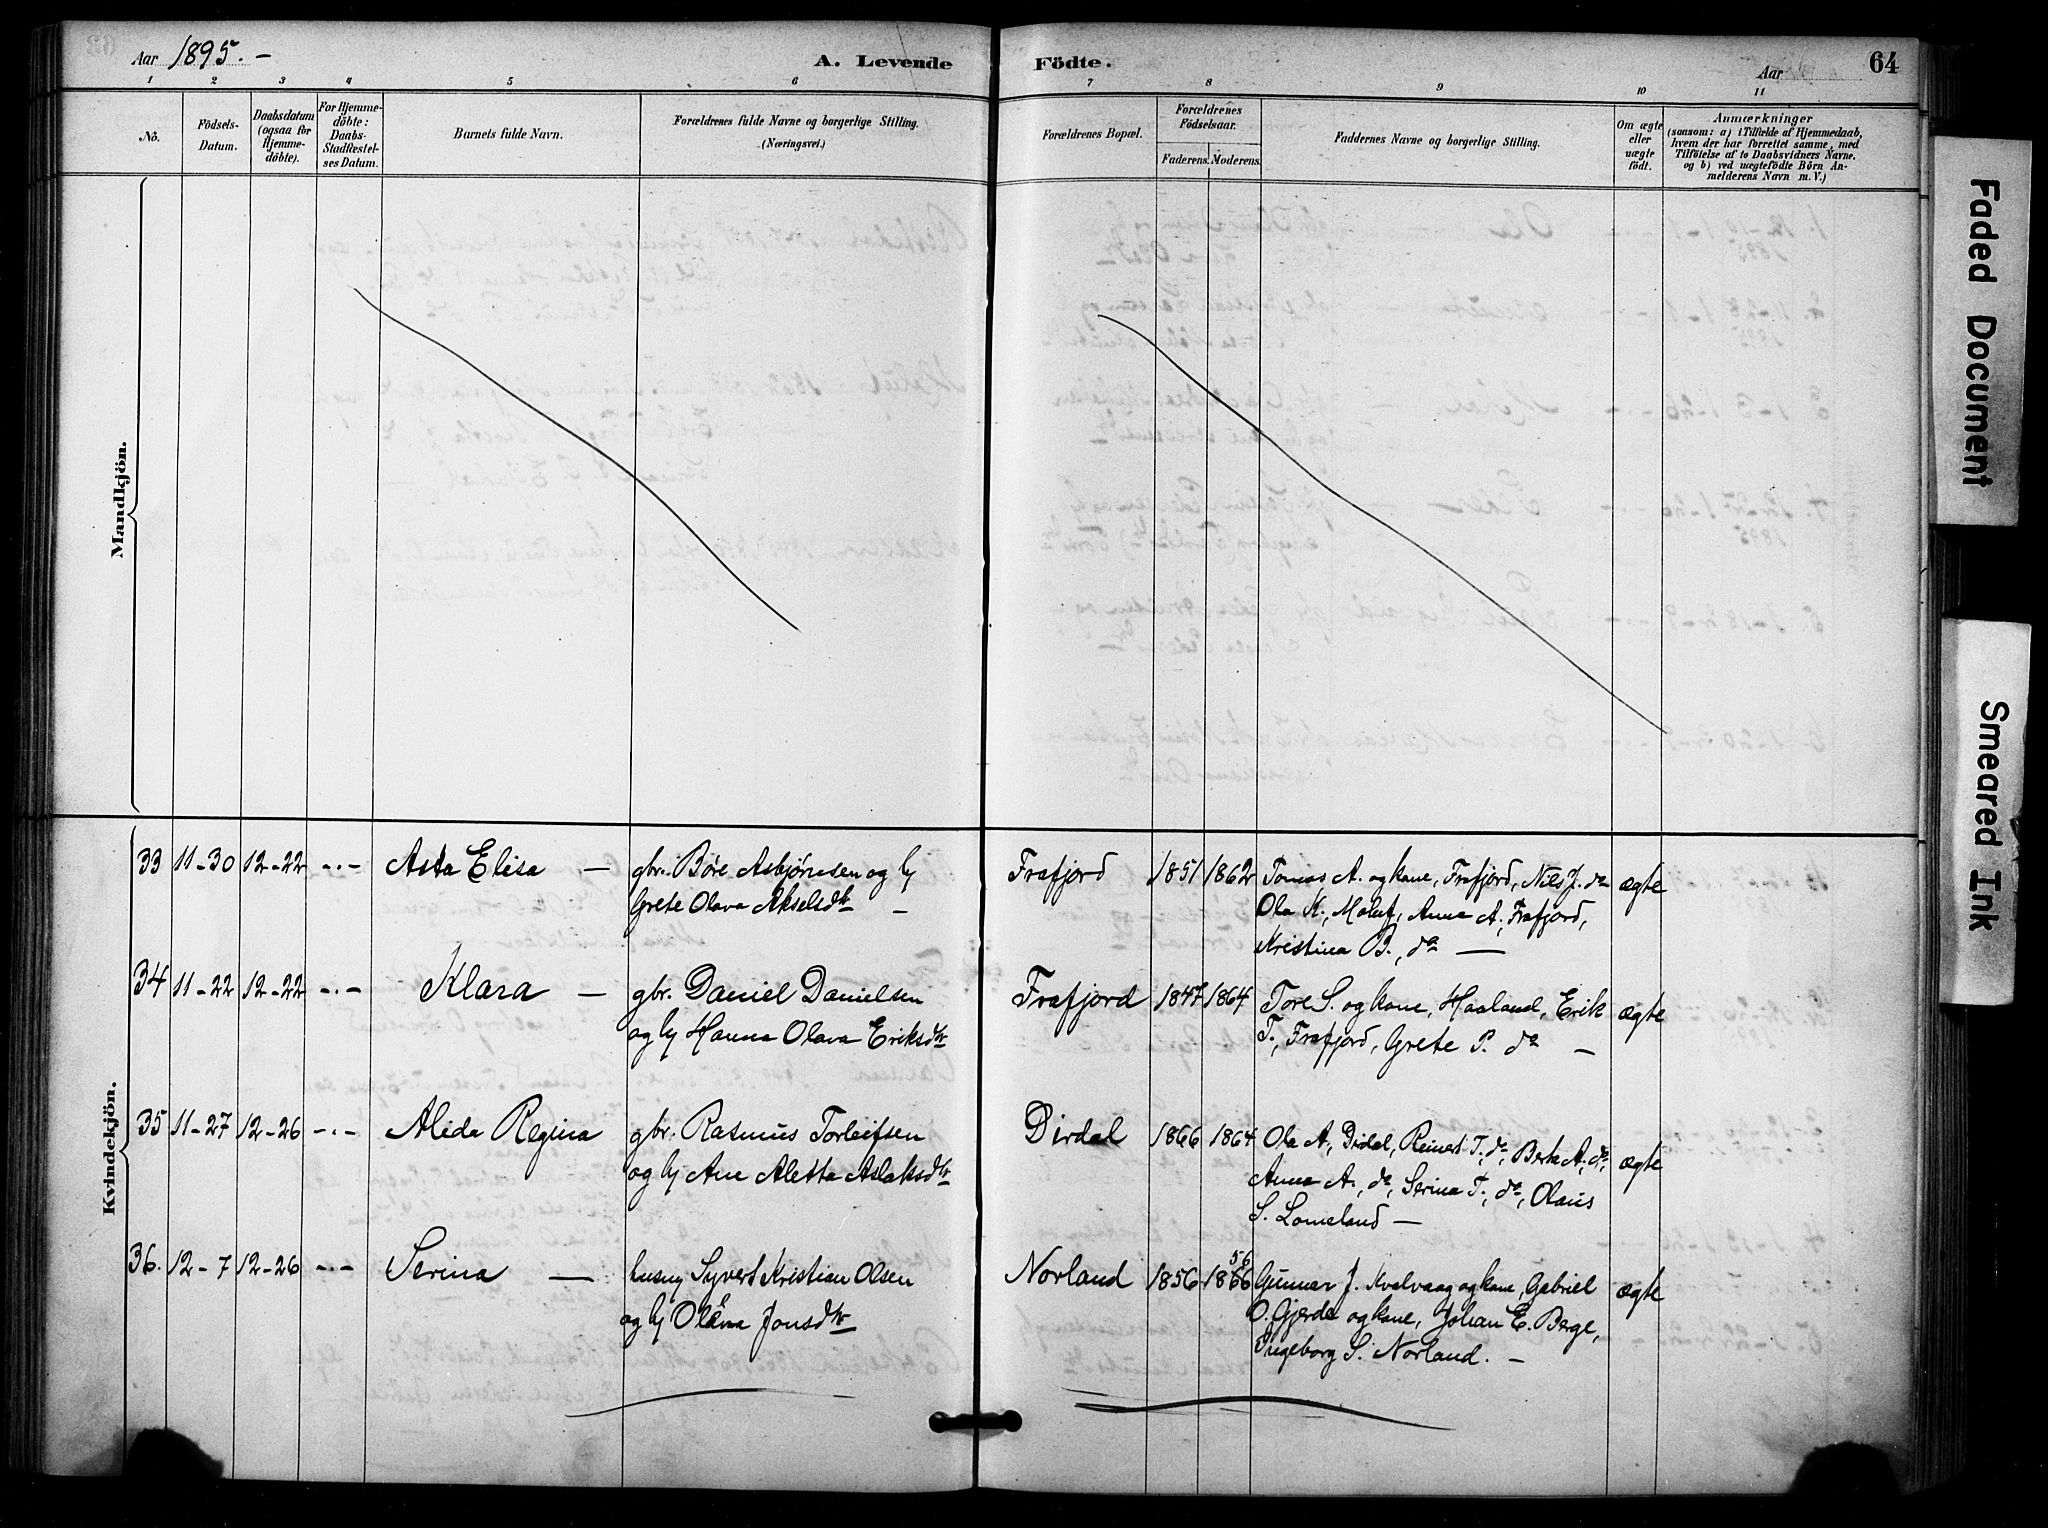 Aar 1895. —
A. Levende Födte.
Aar
64
1 2 3 4 5 6 7 8 9 10 11
No.
Födsels-
Datum.
Daabsdatum
(ogsaa for
Hjemme-
döbte).
For Hjemme-
döbte:
Daabs-
Stadfæstel-
ses Datum.
Barnets fulde Navn.
Forældrenes fulde Navne og borgerlige Stilling.
(Næringsvei.)
Forældrenes Bopæl.
Forældrenes
Födselsaar.
Faderens. Moderens.
Faddernes Navne og borgerlige Stilling.
Om ægte
eller
uægte
födt.
Anmærkninger
(saasom: a) i Tilfælde af Hjemmedaab,
hvem der har forrettet samme, med
Tilföielse af to Daabsvidners Navne.
og b) ved uægtefödte Börn An-
melderens Navn m. V.)
Mandkjön.
Kvindekjön.
33 11-30 12-22 -.- Asta Elisa — gbr. Børe Asbjørnsen og hj Frafjord 1851 1862 Tomas A. og kone, Frafjord, Nils J. do ægte
Grete Olava Akselsdtr — Ola K., Molut, Anna A. Frafjord,
Kristina B., do —
34 11-22 12-22 -.- Klara — gbr. Daniel Danielsen Frafjord 1847 1864 Tore S. og kone, Haaland, Erik ægte
og hj Hanna Olava Eriksdtr T., Frafjord, Grete P. do —
35 11-27 12-26 -.- Alida Regina gbr. Rasmus Torleifsen Dirdal 1866 1864 Ola A., Dirdal, Reinert T., do, Berte A., do, ægte
og hj Ane Aletta Aslaksdtr Anna A., do, Serina T., do, Olaus
S. Lomeland —
36. 12-7 12-26 -.- Serina — husmd Syvert Kristian Olsen Norland 1856 1866 56 Gunnar J. Kvalvaag og kone, Gabriel ægte
og hj Olava Jonsdtr O. Gjerde og kone, Johan E. Berge,
Ingeborg S. Norland. —
Faded Document
Smeared Ink